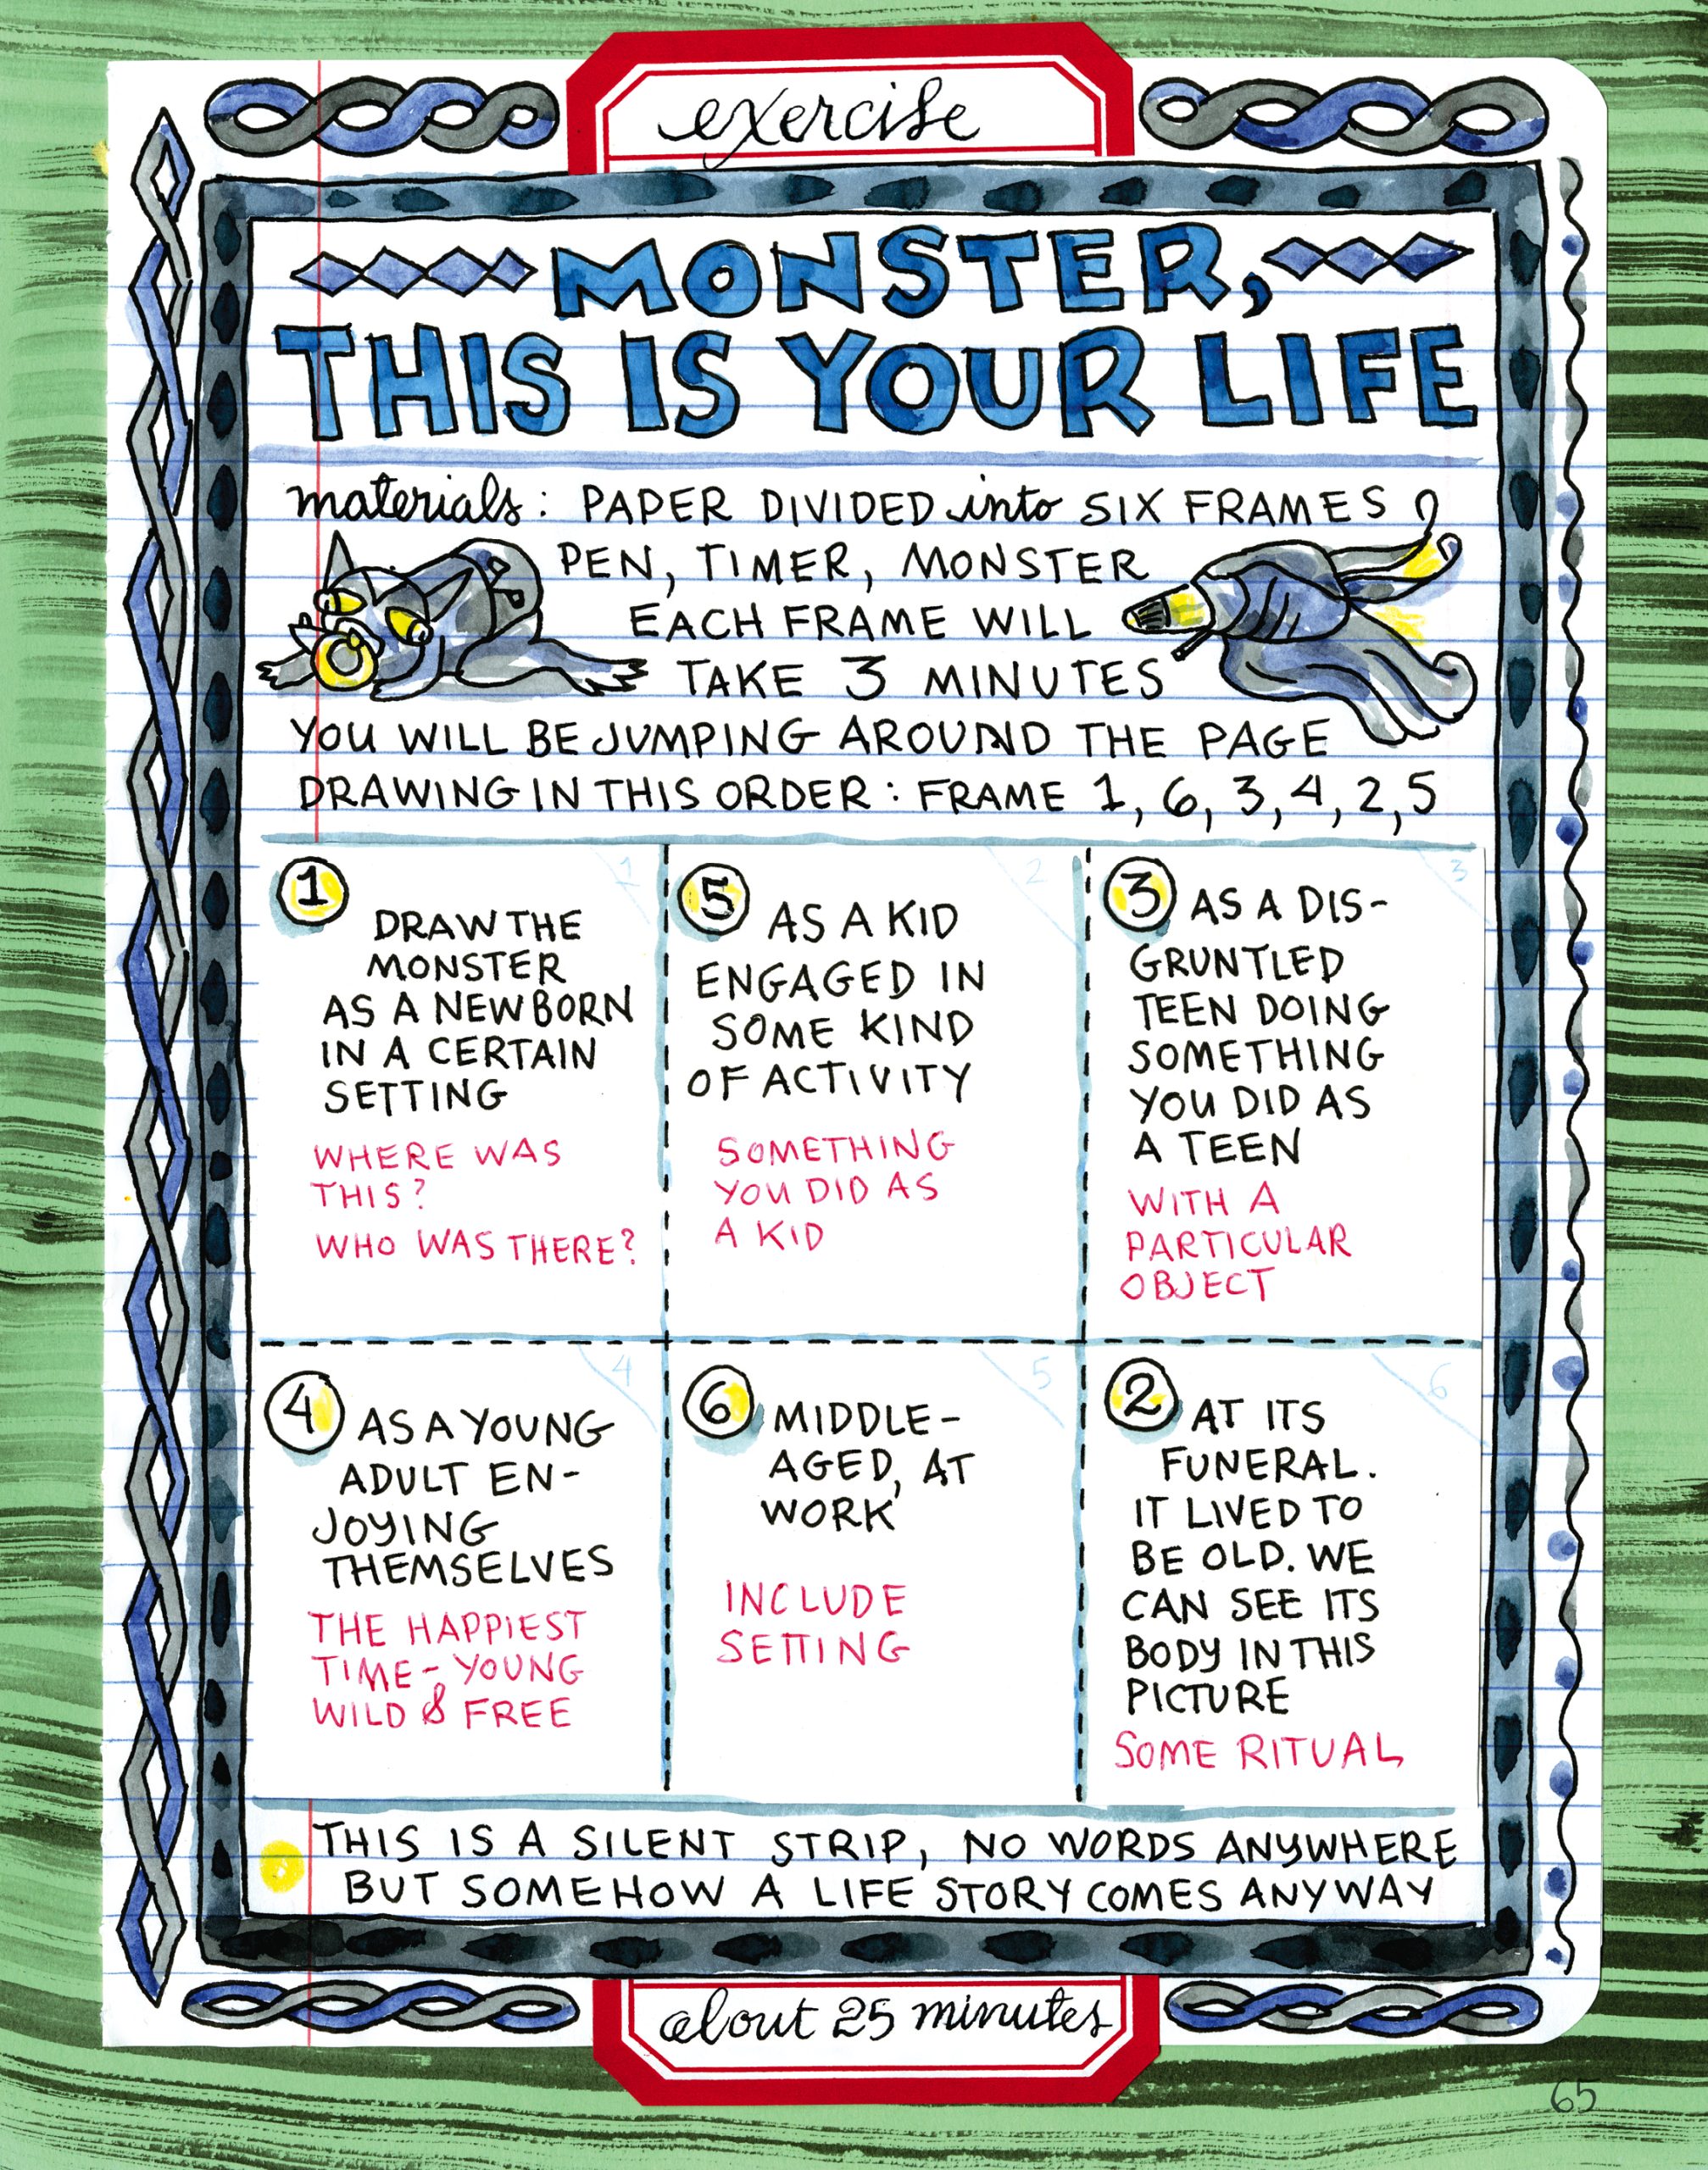 exercise
MONSTER,
THIS IS YOUR LIFE
materials: PAPER DIVIDED into SIX FRAMES
PEN, TIMER, MONSTER
EACH FRAME WILL
TAKE 3 MINUTES
YOU WILL BE JUMPING AROUND THE PAGE
DRAWING IN THIS ORDER: FRAME 1, 6, 3, 4, 2, 5
1
1
DRAW THE
MONSTER
AS A NEWBORN
IN A CERTAIN
SETTING
WHERE WAS
THIS?
WHO WAS THERE?
2
5 AS A KID
ENGAGED IN
SOME KIND
OF ACTIVITY
SOMETHING
YOU DID AS
A KID
3
3 AS A DIS-
GRUNTLED
TEEN DOING
SOMETHING
YOU DID AS
A TEEN
WITH A
PARTICULAR
OBJECT
4
4 AS A YOUNG
ADULT EN-
JOYING
THEMSELVES
THE HAPPIEST
TIME - YOUNG
WILD & FREE
5
6 MIDDLE-
AGED, AT
WORK
INCLUDE
SETTING
6
2 AT ITS
FUNERAL.
IT LIVED TO
BE OLD. WE
CAN SEE ITS
BODY IN THIS
PICTURE
SOME RITUAL
THIS IS A SILENT STRIP, NO WORDS ANYWHERE
BUT SOMEHOW A LIFE STORY COMES ANYWAY
about 25 minutes
65